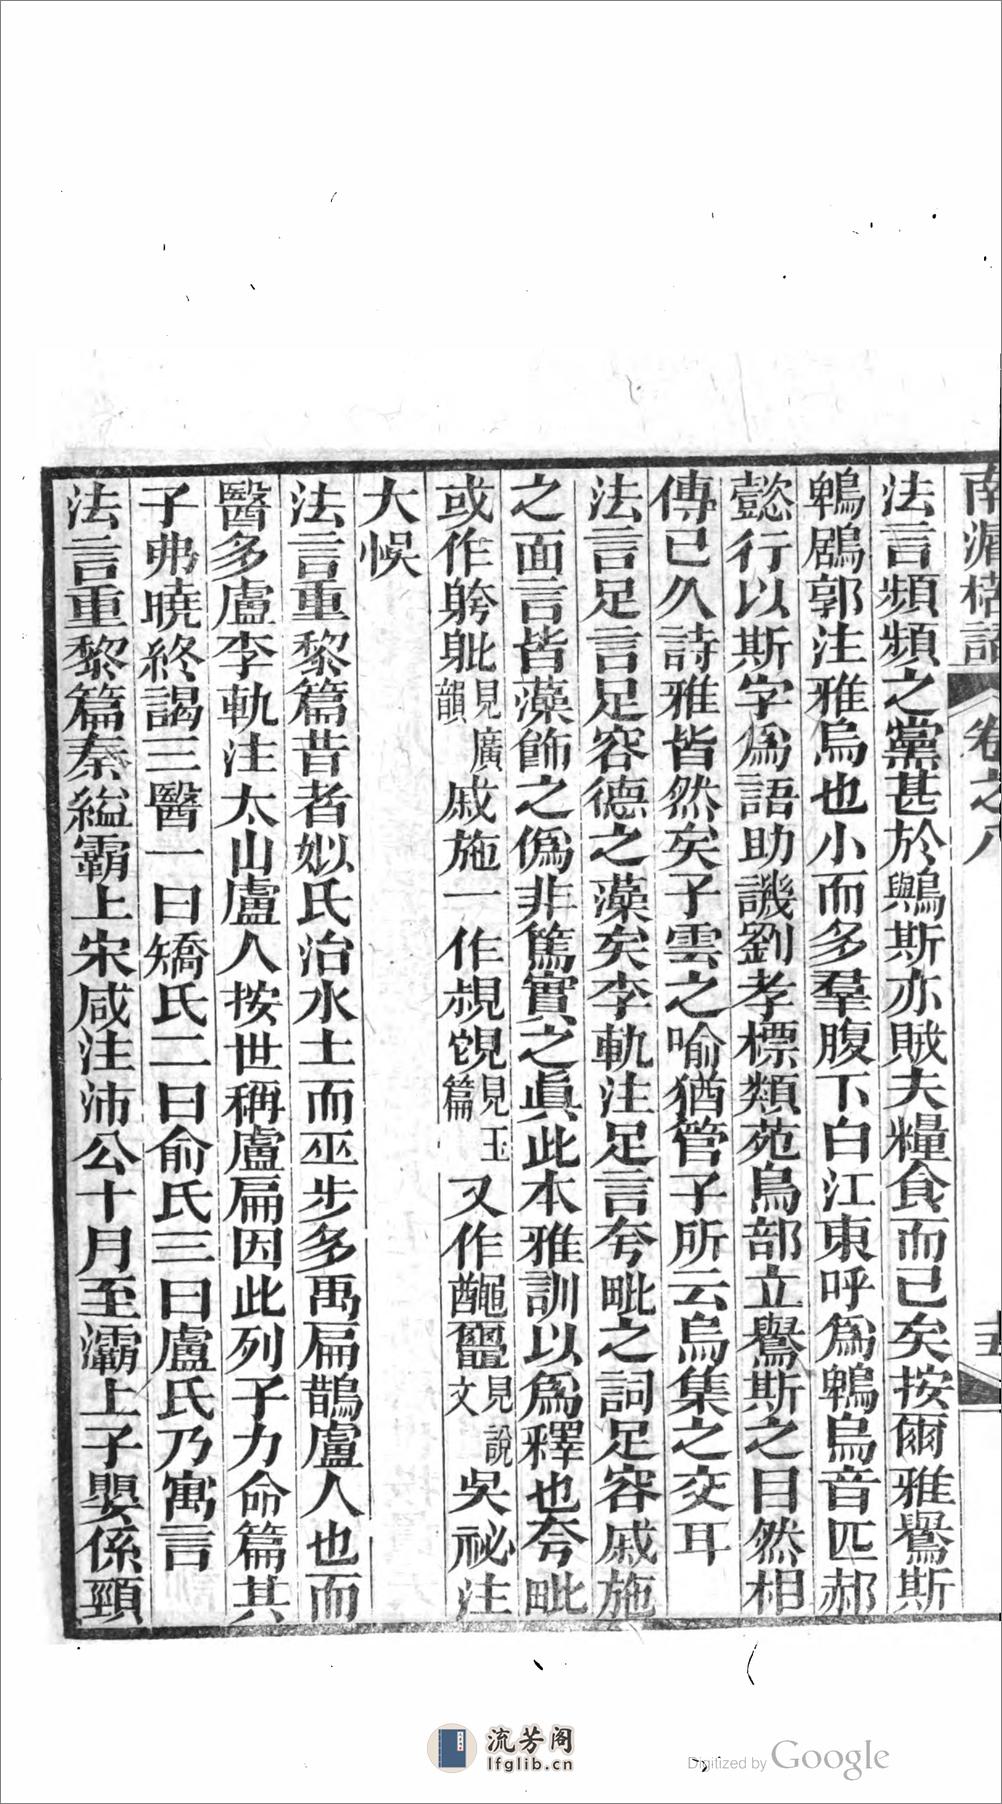 南漘楛語 卷之八 十五
法言頻頻之黨甚於鸒斯亦賊夫糧食而已矣按爾雅鸒斯
鵯鶋郭注雅烏也小而多羣腹下白江東呼爲鵯烏音匹郝
懿行以斯字爲語助譏劉孝標類苑鳥部立鸒斯之目然相
傳已久詩雅皆然矣子雲之喻猶管子所云烏集之交耳
法言足言足容德之藻矣李軌注足言夸毗之詞足容戚施
之面言皆藻飾之僞非篤實之眞此本雅訓以爲釋也夸毗
或作舿䠋見廣韻戚施一作䚄䚅見玉篇又作𪓰𪓿見說文吳祕注
大悞
法言重黎篇昔者姒氏治水土而巫步多禹扁鵲盧人也而
醫多盧李軌注太山盧人按世稱盧扁因此列子力命篇其
子弗曉終謁三醫一曰矯氏二曰俞氏三曰盧氏乃寓言
法言重黎篇秦縊霸上宋咸注沛公十月至灞上子嬰係頸
流芳阁
lfglib.cn
Digitized by Google